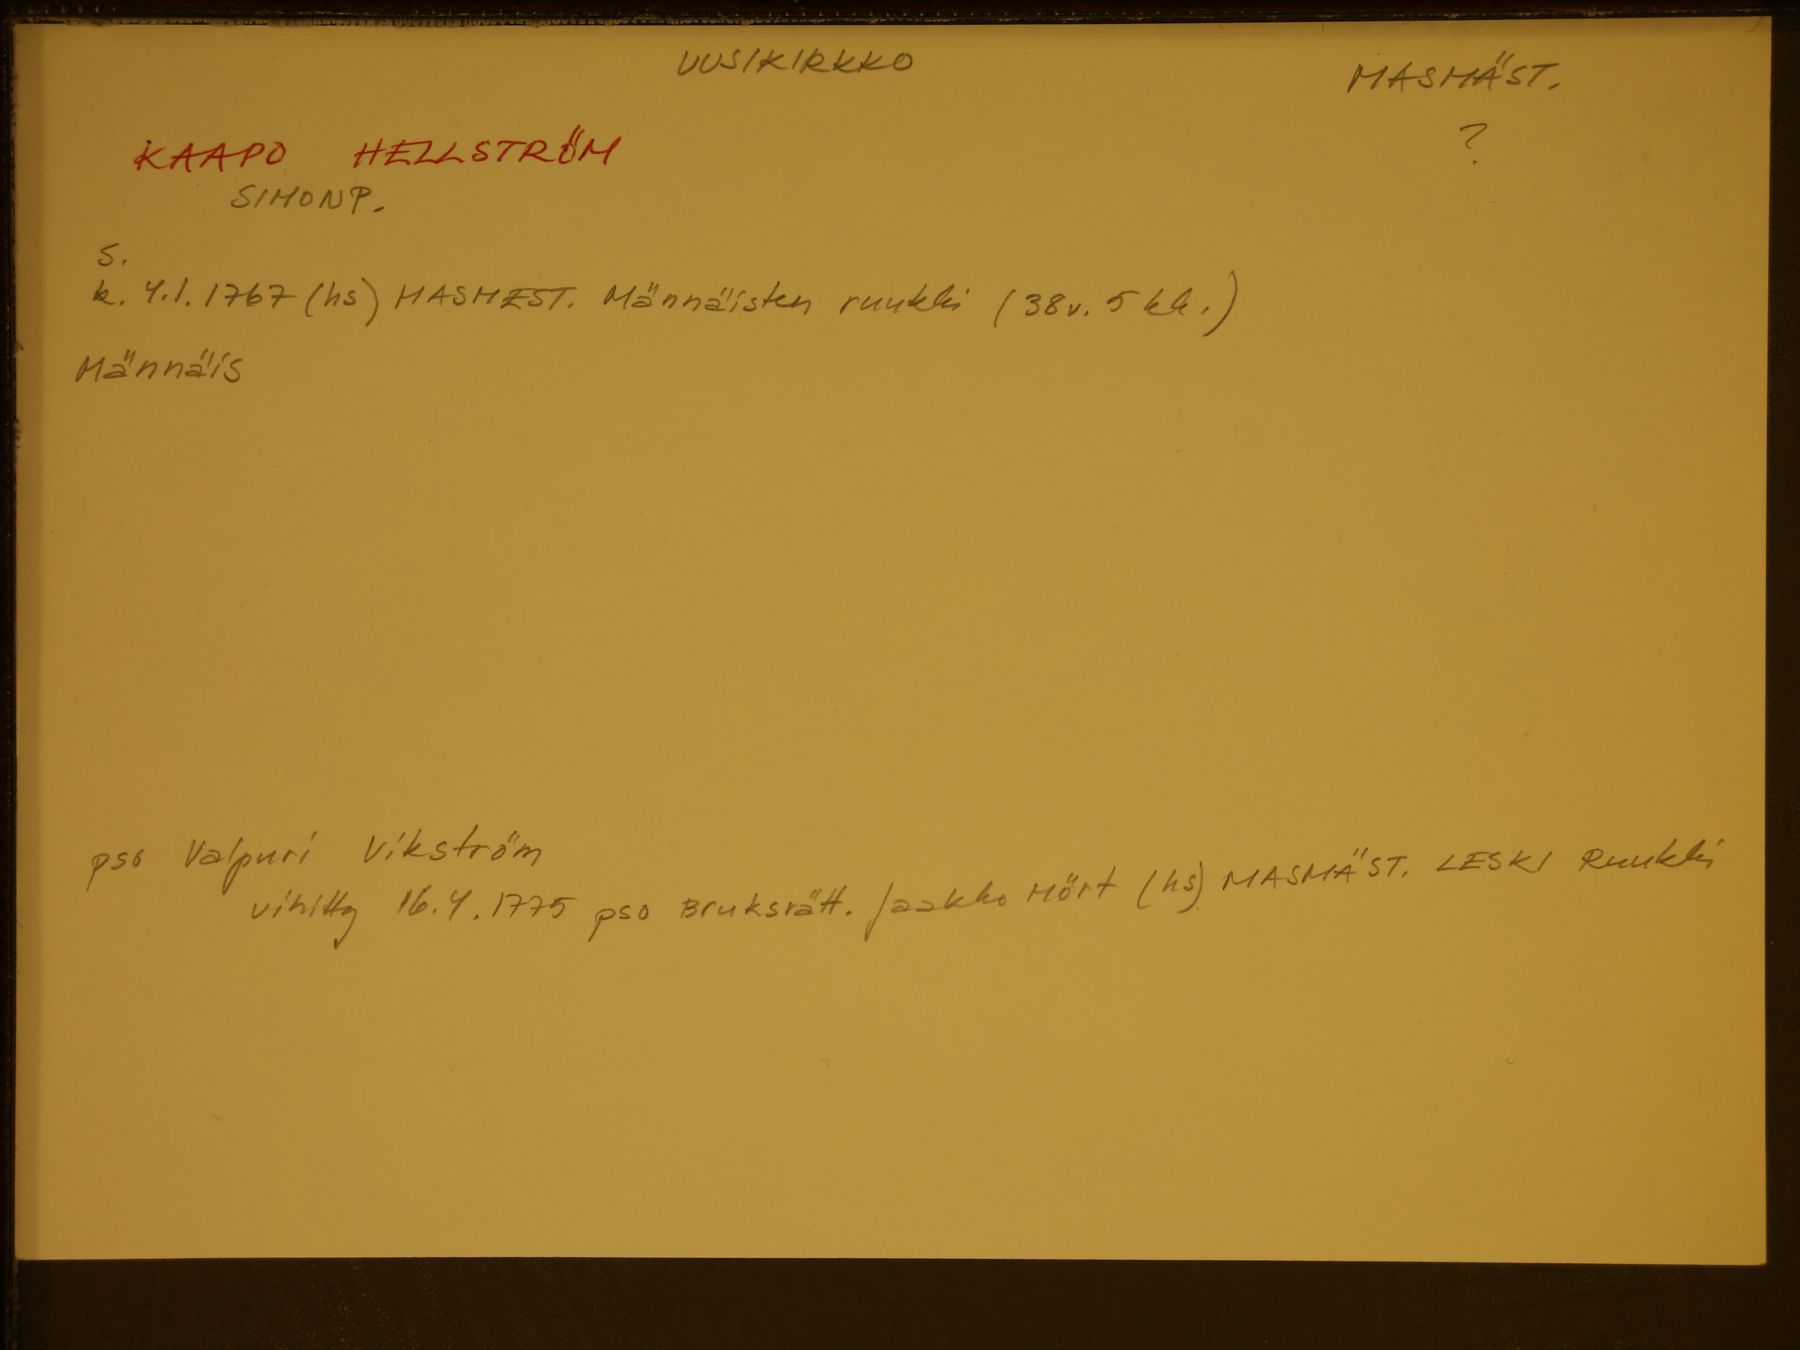 UUSIKIRKKO
MASMÄST.
?
KAAPO HELLSTRÖM
SIMONP.
S.
k. 4.1.1767 (hs) MASMEST. Männäisten ruukki (38v. 5 kk.)
Männäis
pso Valpuri Vikström
vihitty 16.4.1775 pso Bruksrätt. Jaakko Mört (hs) MASMÄST. LESKI Ruukki